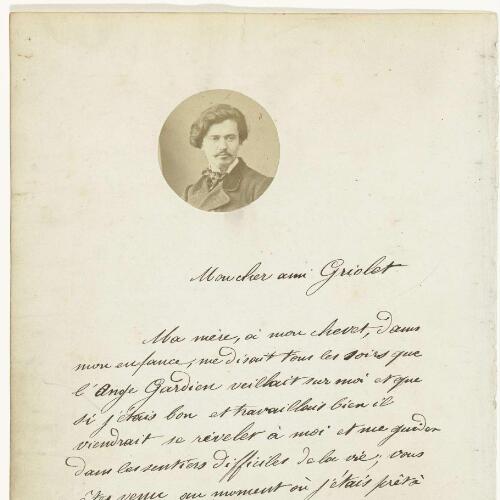 Mon cher ami Griolet
Ma mère, à mon chevet, dans
mon enfance, me disait tous les soirs que
l'Ange Gardien veillait sur moi et que
si j'étais bon et travaillais bien il
viendrait se révéler à moi et me guider
dans les sentiers difficiles de la vie; vous
êtes venu au moment où j'étais prêt à